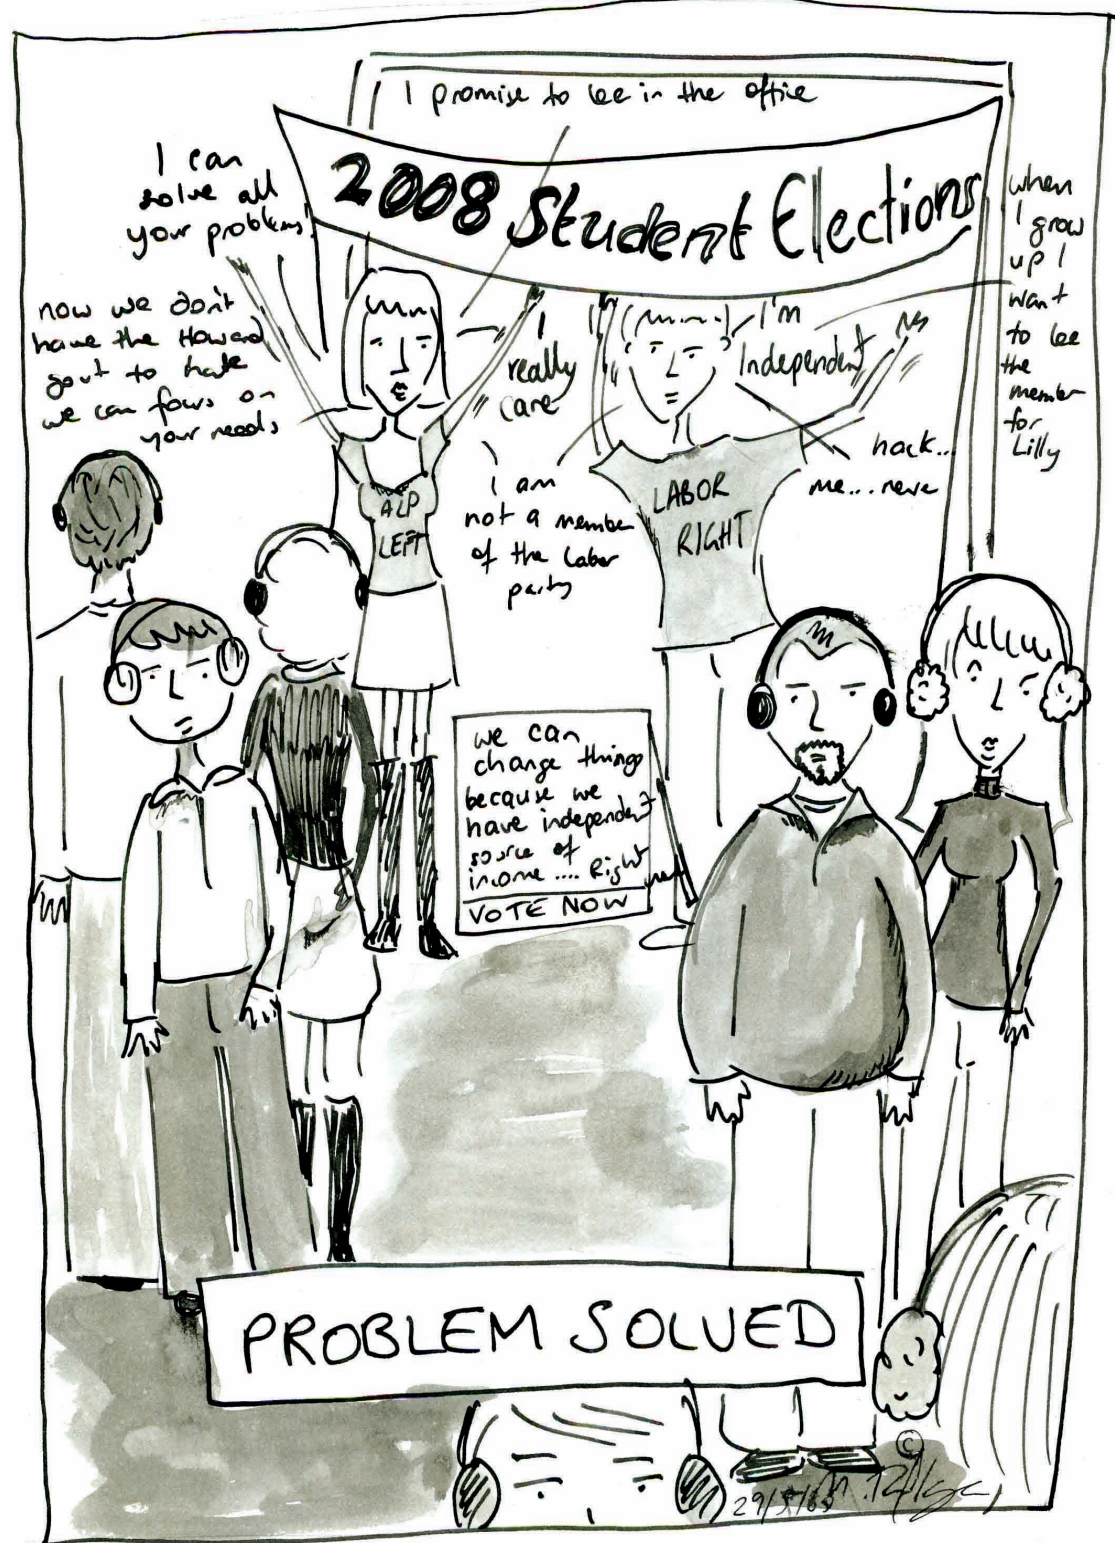 I promise to be in the office
2008 Student Elections
I can
solve all
your problems
now we don't
have the Howard
govt to hate
we can focus on
your needs
I
really
care
I'm
Independent
hack...
me... never
when
I grow
up I
want
to be
the
member
for
Lilly
I am
not a member
of the Labor
party
ALP
LEFT
LABOR
RIGHT
we can
change things
because we
have independent
source of
income .... Right
VOTE NOW
PROBLEM SOLVED
©